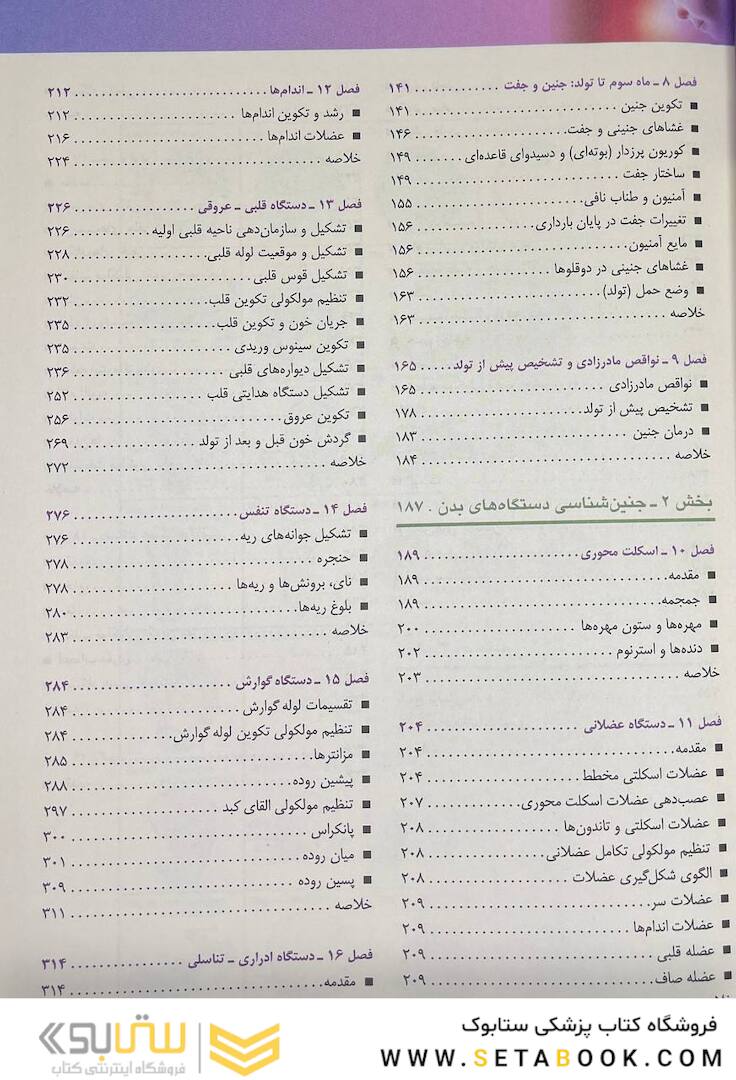 فصل ۸ ـ ماه سوم تا تولد: جنین و جفت ............. ۱۴۱
■ تکوین جنین ............. ۱۴۱
■ غشاهای جنینی و جفت ............. ۱۴۶
■ کوریون پرزدار (بوته‌ای) و دسیدوای قاعده‌ای ........ ۱۴۹
■ ساختار جفت ............. ۱۴۹
■ آمنیون و طناب نافی ............. ۱۵۵
■ تغییرات جفت در پایان بارداری ............. ۱۵۶
■ مایع آمنیون ............. ۱۵۶
■ غشاهای جنینی در دوقلوها ............. ۱۵۶
■ وضع حمل (تولد) ............. ۱۶۳
خلاصه ............. ۱۶۳
فصل ۹ ـ نواقص مادرزادی و تشخیص پیش از تولد ..... ۱۶۵
■ نواقص مادرزادی ............. ۱۶۵
■ تشخیص پیش از تولد ............. ۱۷۸
■ درمان جنین ............. ۱۸۳
خلاصه ............. ۱۸۴
بخش ۲ ـ جنین‌شناسی دستگاه‌های بدن . ۱۸۷
فصل ۱۰ ـ اسکلت محوری ............. ۱۸۹
■ مقدمه ............. ۱۸۹
■ جمجمه ............. ۱۸۹
■ مهره‌ها و ستون مهره‌ها ............. ۲۰۰
■ دنده‌ها و استرنوم ............. ۲۰۲
خلاصه ............. ۲۰۳
فصل ۱۱ ـ دستگاه عضلانی ............. ۲۰۴
■ مقدمه ............. ۲۰۴
■ عضلات اسکلتی مخطط ............. ۲۰۴
■ عصب‌دهی عضلات اسکلت محوری ............. ۲۰۷
■ عضلات اسکلتی و تاندون‌ها ............. ۲۰۸
■ تنظیم مولکولی تکامل عضلانی ............. ۲۰۸
■ الگوی شکل‌گیری عضلات ............. ۲۰۸
■ عضلات سر ............. ۲۰۹
■ عضلات اندام‌ها ............. ۲۰۹
■ عضله قلبی ............. ۲۰۹
■ عضله صاف ............. ۲۰۹
فصل ۱۲ ـ اندام‌ها ............. ۲۱۲
■ رشد و تکوین اندام‌ها ............. ۲۱۲
■ عضلات اندام‌ها ............. ۲۱۶
خلاصه ............. ۲۲۴
فصل ۱۳ ـ دستگاه قلبی ـ عروقی ............. ۲۲۶
■ تشکیل و سازمان‌دهی ناحیه قلبی اولیه ............. ۲۲۶
■ تشکیل و موقعیت لوله قلبی ............. ۲۲۸
■ تشکیل قوس قلبی ............. ۲۳۰
■ تنظیم مولکولی تکوین قلب ............. ۲۳۲
■ جریان خون و تکوین قلب ............. ۲۳۵
■ تکوین سینوس وریدی ............. ۲۳۵
■ تشکیل دیواره‌های قلبی ............. ۲۳۶
■ تشکیل دستگاه هدایتی قلب ............. ۲۵۲
■ تکوین عروق ............. ۲۵۶
■ گردش خون قبل و بعد از تولد ............. ۲۶۹
خلاصه ............. ۲۷۲
فصل ۱۴ ـ دستگاه تنفس ............. ۲۷۶
■ تشکیل جوانه‌های ریه ............. ۲۷۶
■ حنجره ............. ۲۷۸
■ نای، برونش‌ها و ریه‌ها ............. ۲۷۸
■ بلوغ ریه‌ها ............. ۲۸۰
خلاصه ............. ۲۸۳
فصل ۱۵ ـ دستگاه گوارش ............. ۲۸۴
■ تقسیمات لوله گوارش ............. ۲۸۴
■ تنظیم مولکولی تکوین لوله گوارش ............. ۲۸۴
■ مزانترها ............. ۲۸۵
■ پیشین روده ............. ۲۸۸
■ تنظیم مولکولی القای کبد ............. ۲۹۷
■ پانکراس ............. ۳۰۰
■ میان روده ............. ۳۰۱
■ پسین روده ............. ۳۰۹
خلاصه ............. ۳۱۱
فصل ۱۶ ـ دستگاه ادراری ـ تناسلی ............. ۳۱۴
■ مقدمه ............. ۳۱۴
فروشگاه کتاب پزشکی ستابوک
WWW.SETABOOK.COM
ستابوک
فروشگاه اینترنتی کتاب